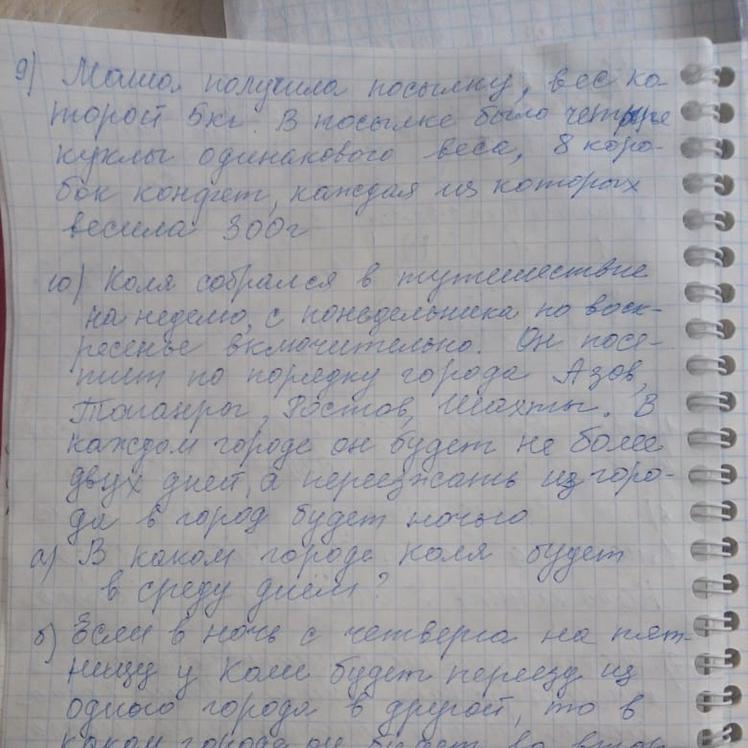 9) Маша получила посылку, вес ко-
торой 5кг. В посылке было четыре
куклы одинакового веса, 8 коро-
бок конфет, каждая из которых
весила 300г
10) Коля собрался в путешествие
на неделю, с понедельника по воск-
ресенье включительно. Он посе-
тит по порядку города Азов,
Таганрог, Ростов, Шахты. В
каждом городе он будет не более
двух дней, а переезжать из горо-
да в город будет ночью
а) В каком городе Коля будет
в среду днём?
б) Если в ночь с четверга на пят-
ницу у Коли будет переезд из
одного города в другой, то в
каком городе он будет во втор